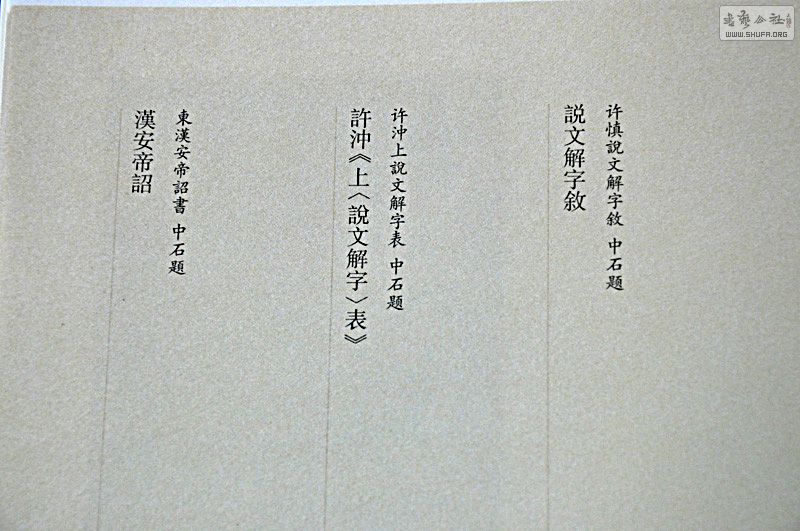 许慎說文解字敘 中石題
説文解字敘
许沖上說文解字表 中石題
許沖《上〈說文解字〉表》
東漢安帝詔書 中石題
漢安帝詔
书艺公社
WWW.SHUFA.ORG